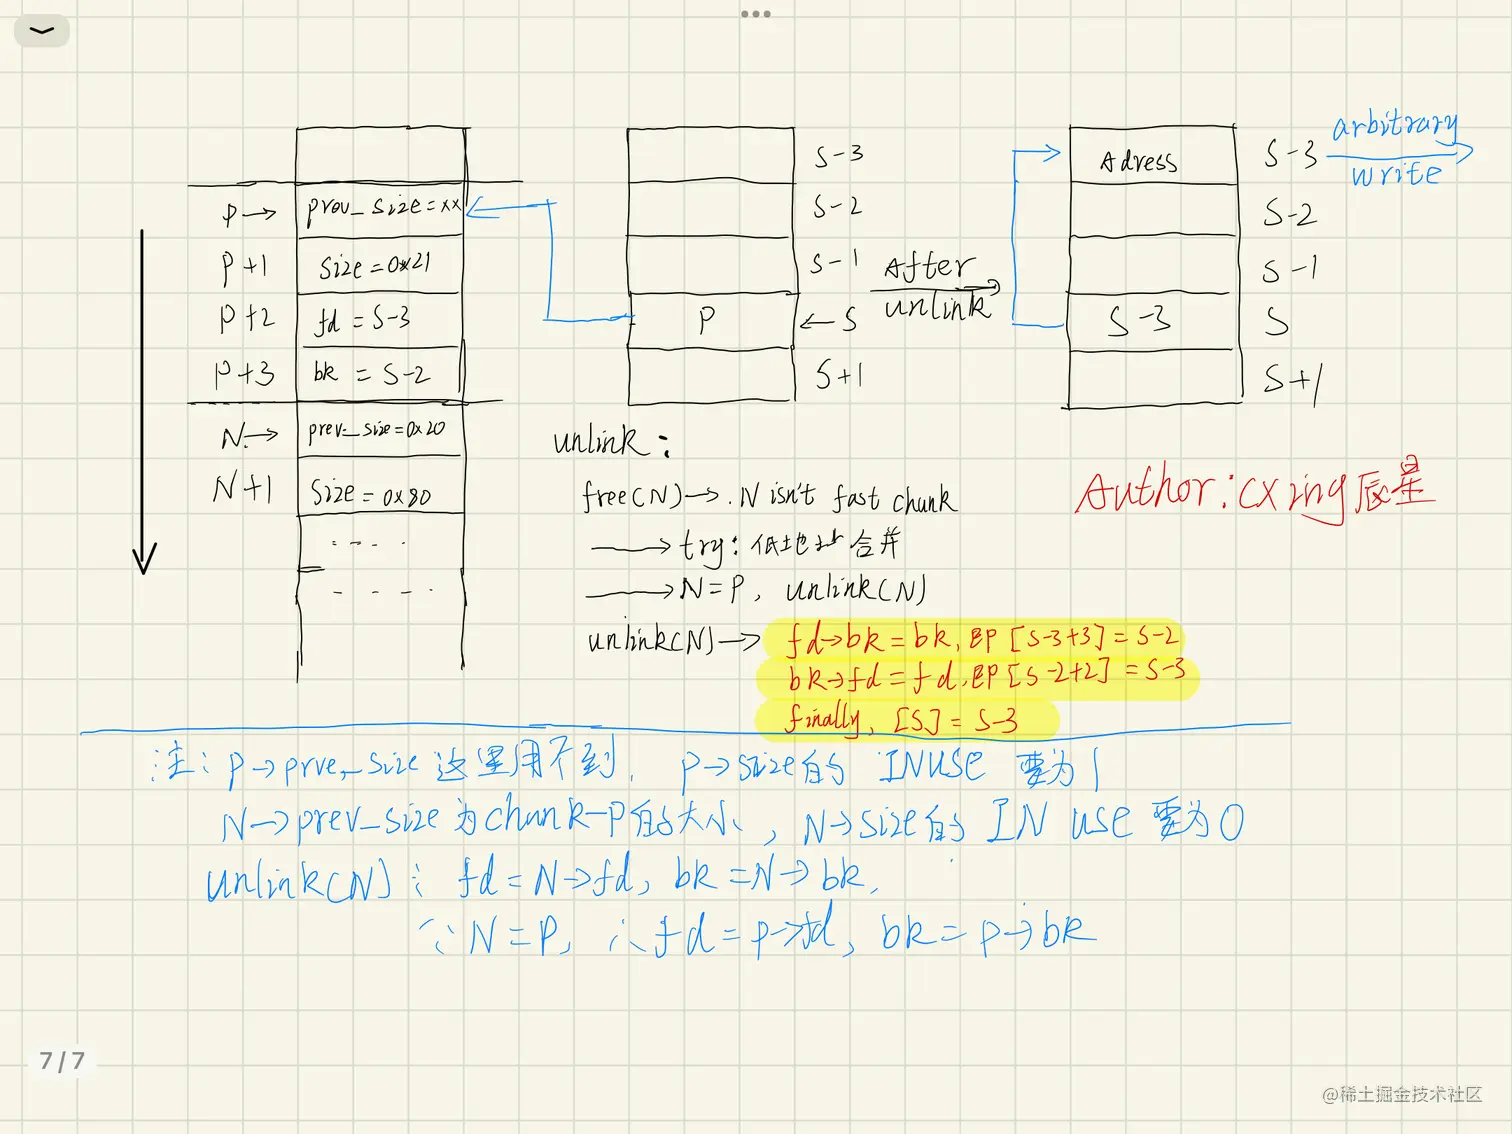 prev_size=xx
P→
P+1
size=0x21
P+2
fd=S-3
P+3
bk=S-2
N→
prev_size=0x20
N+1
Size=0x80
S-3
S-2
S-1
P
←S
S+1
After
unlink
Adress
S-3
S-2
S-1
S-3
S
S+1
arbitrary
write
unlink:
free(N)→.N isn't fast chunk
→try:低地址合并
→N=P, unlink(N)
unlink(N)→fd→bk=bk,即[S-3+3]=S-2
bk→fd=fd,即[S-2+2]=S-3
finally, [S]=S-3
Author:cxing辰星
注:P→prve_size这里用不到, P→size的 INUSE 要为1
N→prev_size为chunk-P的大小, N→size的 IN USE 要为0
unlink(N): fd=N→fd, bk=N→bk,
∵N=P, ∴fd=P→fd, bk=P→bk
7/7
@稀土掘金技术社区